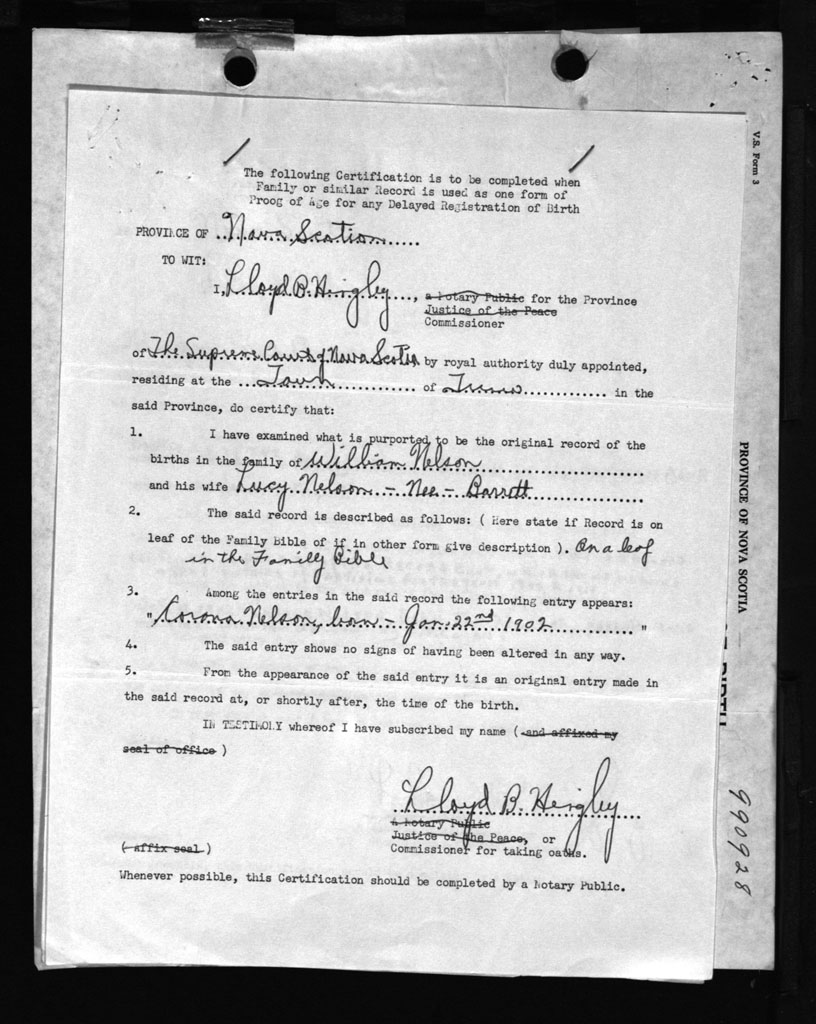 The following Certification is to be completed when
Family or similar Record is used as one form of
Proog of Age for any Delayed Registration of Birth
PROVINCE OF ..Nova Scotia.....
TO WIT:
I, Lloyd B. Hingley ...., a Notary Public for the Province
Justice of the Peace
Commissioner
of The Supreme Court of Nova Scotia by royal authority duly appointed,
residing at the ... Town ............. of Truro .............. in the
said Province, do certify that:
1. I have examined what is purported to be the original record of the
births in the family of William Nelson ..........................
and his wife Lucy Nelson - Nee - Barrett ..................
2. The said record is described as follows: ( Here state if Record is on
leaf of the Family Bible of if in other form give description ). On a leaf
in the Family Bible
3. Among the entries in the said record the following entry appears:
" Corona Nelson, born - Jan. 22nd 1902 .............. "
4. The said entry shows no signs of having been altered in any way.
5. From the appearance of the said entry it is an original entry made in
the said record at, or shortly after, the time of the birth.
IN TESTIMONY whereof I have subscribed my name ( and affixed my
seal of office )
Lloyd B. Hingley
A Notary Public
Justice of the Peace, or
( affix seal ) Commissioner for taking oaths.
Whenever possible, this Certification should be completed by a Notary Public.
V.S. Form 3
PROVINCE OF NOVA SCOTIA
OF BIRTH
990928